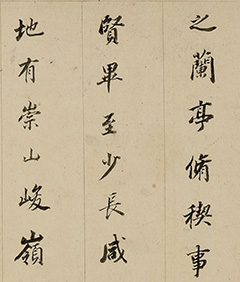 之蘭亭脩稧事
賢畢至少長咸
地有崇山峻嶺